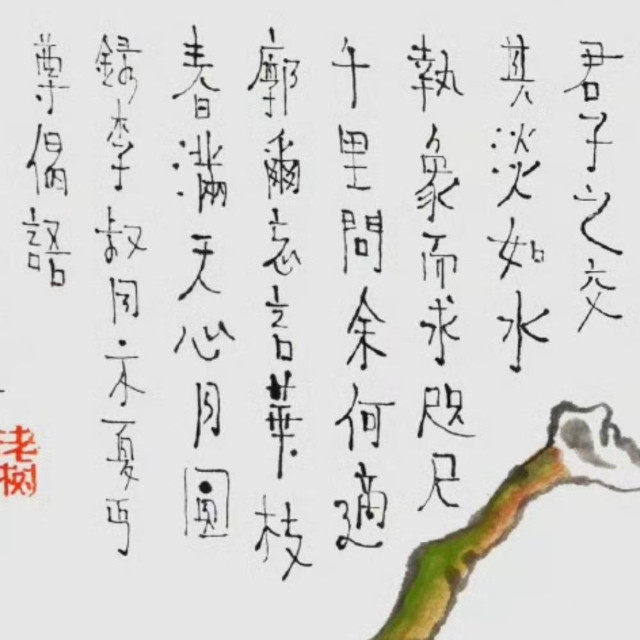 君子之交
其淡如水
執象而求咫尺
千里問余何適
廓爾忘言華枝
春滿天心月圓
錄李叔同示夏丏
尊偈語
老树